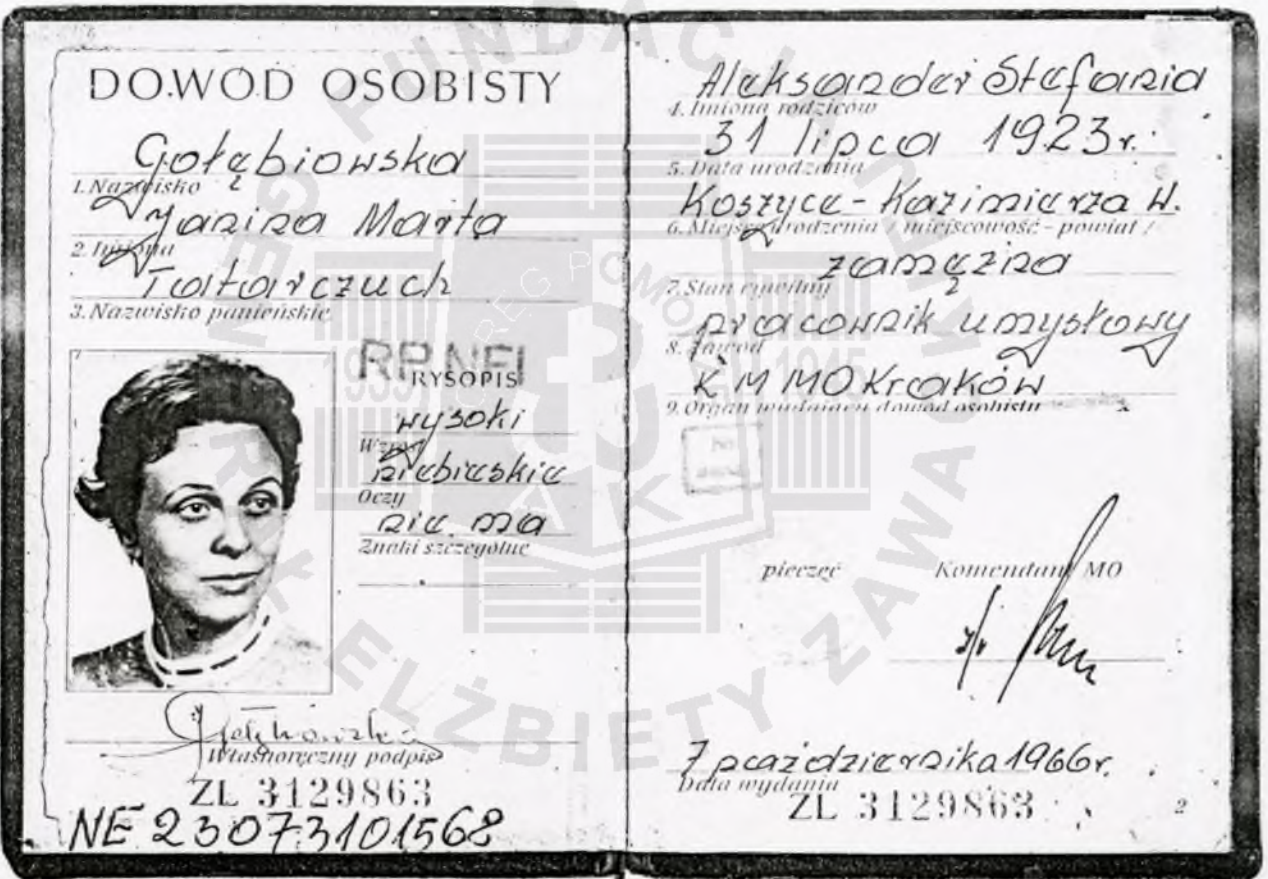 DOWÓD OSOBISTY
Gołębiowska
1. Nazwisko
Janina Marta
2. Imiona
Tatarczuch
3. Nazwisko panieńskie
RYSOPIS
wysoki
Wzrost
niebieskie
Oczy
nie ma
Znaki szczególne
Własnoręczny podpis
ZL 3129863
NE 23073101568
Aleksander Stefania
4. Imiona rodziców
31 lipca 1923r.
5. Data urodzenia
Koszyce - Kazimierza W.
6. Miejsce urodzenia / miejscowość - powiat /
zamężna
7. Stan cywilny
pracownik umysłowy
8. Zawód
K M MO Kraków
9. Organ wydający dowód osobisty
pieczęć Komendant MO
7 października 1966r.
Data wydania
ZL 3129863
2
FUNDACJA GENERAŁ ELŻBIETY ZAWACKIEJ
OKRĘG POMORZE
1939 1945
AK